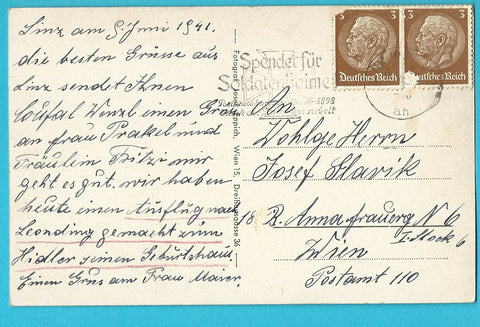 Linz am 9. Juni 1941.
die besten Grüsse aus
Linz sendet Ihnen
Loufal Wenzl einen Gruss
an frau Prakel und
Fräulein Fritzi mir
geht es gut, wir haben
heute einen Ausflug nach
Leonding gemacht zum
Hidler seinen Geburtshaus
Einen Grus am Frau Maier.
Wien 15, Dreihausgasse 36
Spendet für
Soldatenheime
3
3
Deutsches Reich
Deutsches Reich
An
Wohlge Herrn
Josef Slavik
18 R. Annafrauerg N 6
I. Stock 6
Wien
Postamt 110